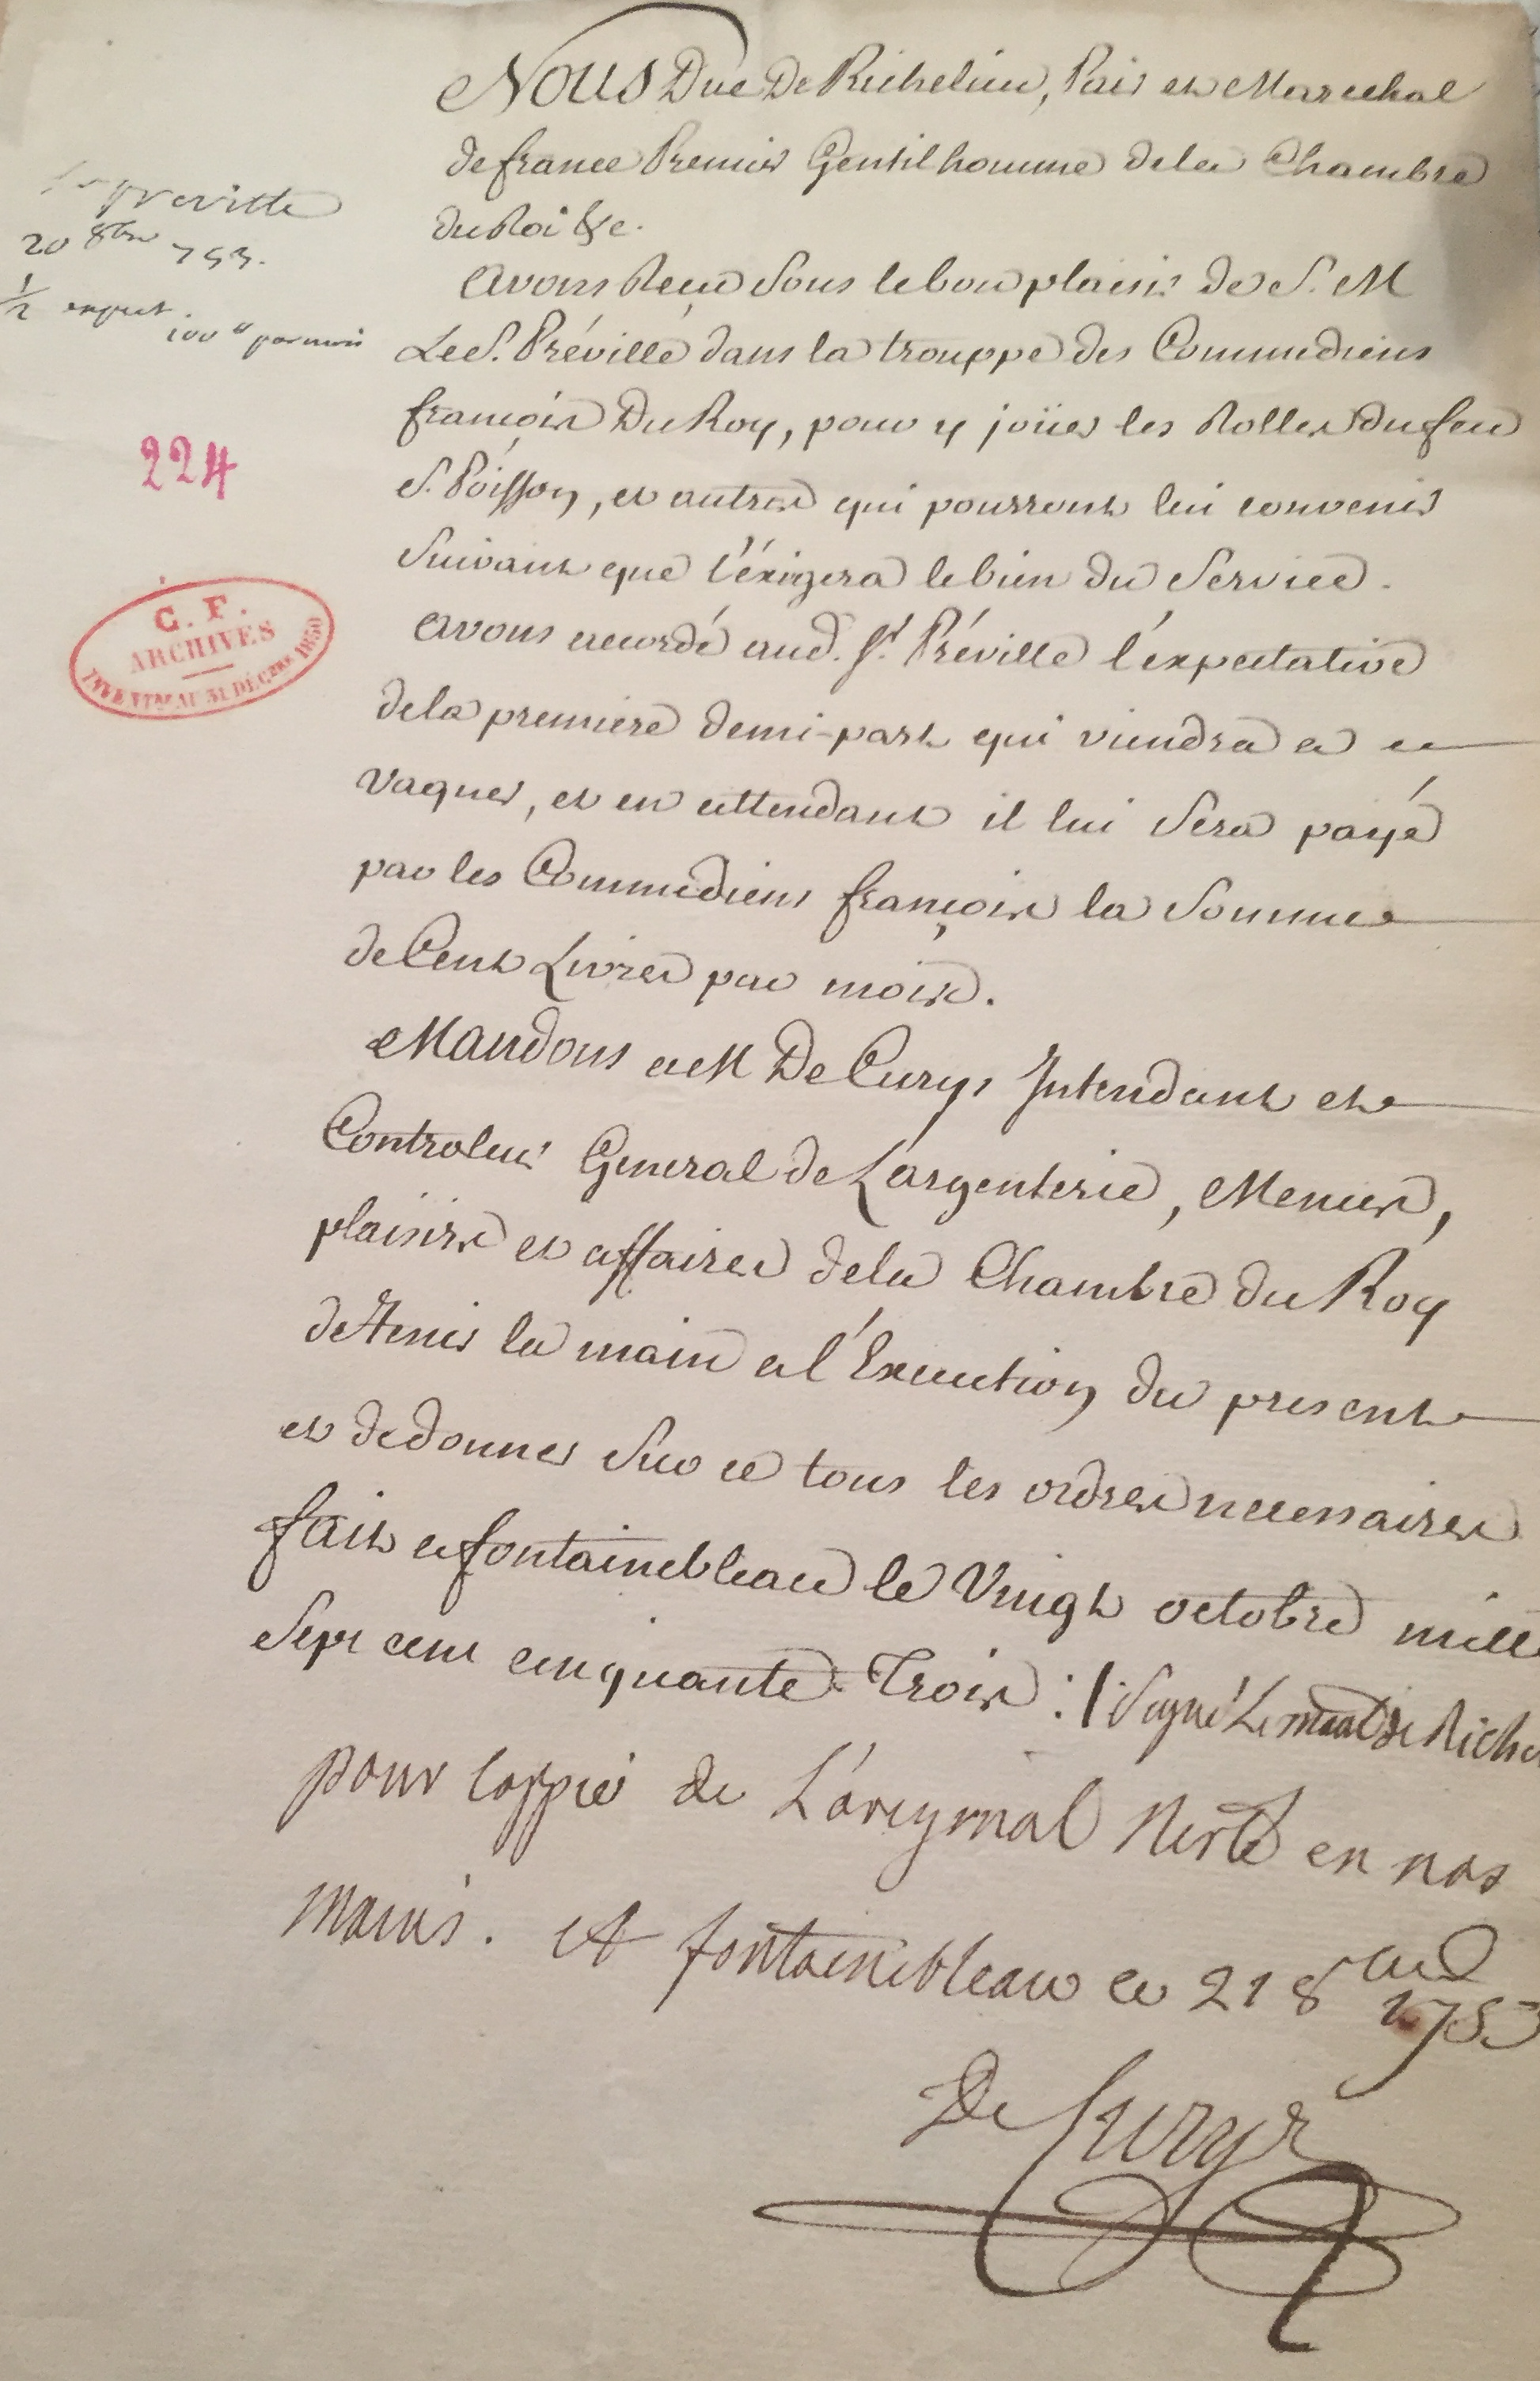 Nous Duc De Richelieu, Pair et Marechal
de france Premier Gentilhomme dela Chambre
du Roi &c.
Avons Reçu Sous le bon plaisir de S. M
Le S. Préville dans la trouppe des Commediens
françois Du Roy, pour y joüer les Rolles du feu
S. Poisson, et autres qui pourront lui convenir
Suivant que l'éxigera le bien du Service.
Avons accordé aud. Sr. Préville l'éxpectative
dela premiere demi-part qui viendra a
Vaquer, et en attendant il lui Sera payé
par les Commediens françois la Somme
de Cent Livres par mois.
Mandons a M De Curys Intendant et
Controleur General de L'argenterie, Menus,
plaisirs et affaires dela Chambre du Roy
de Tenir la main a l'Execution du present
et de donner Sur ce tous les ordres necessaires
fait a fontainebleau le Vingt octobre mille
Sept cent cinquante-Trois :/ Signé Le maal de Riche
pour Coppie de L'original Resté en nos
mains. A fontainebleau ce 21 8 1753
De Curys
preville
20 8bre 753.
1/2 expect.
100 " par mois
224
C. F.
ARCHIVES
INVENTAIRE AU 31 DÉCBRE 1850